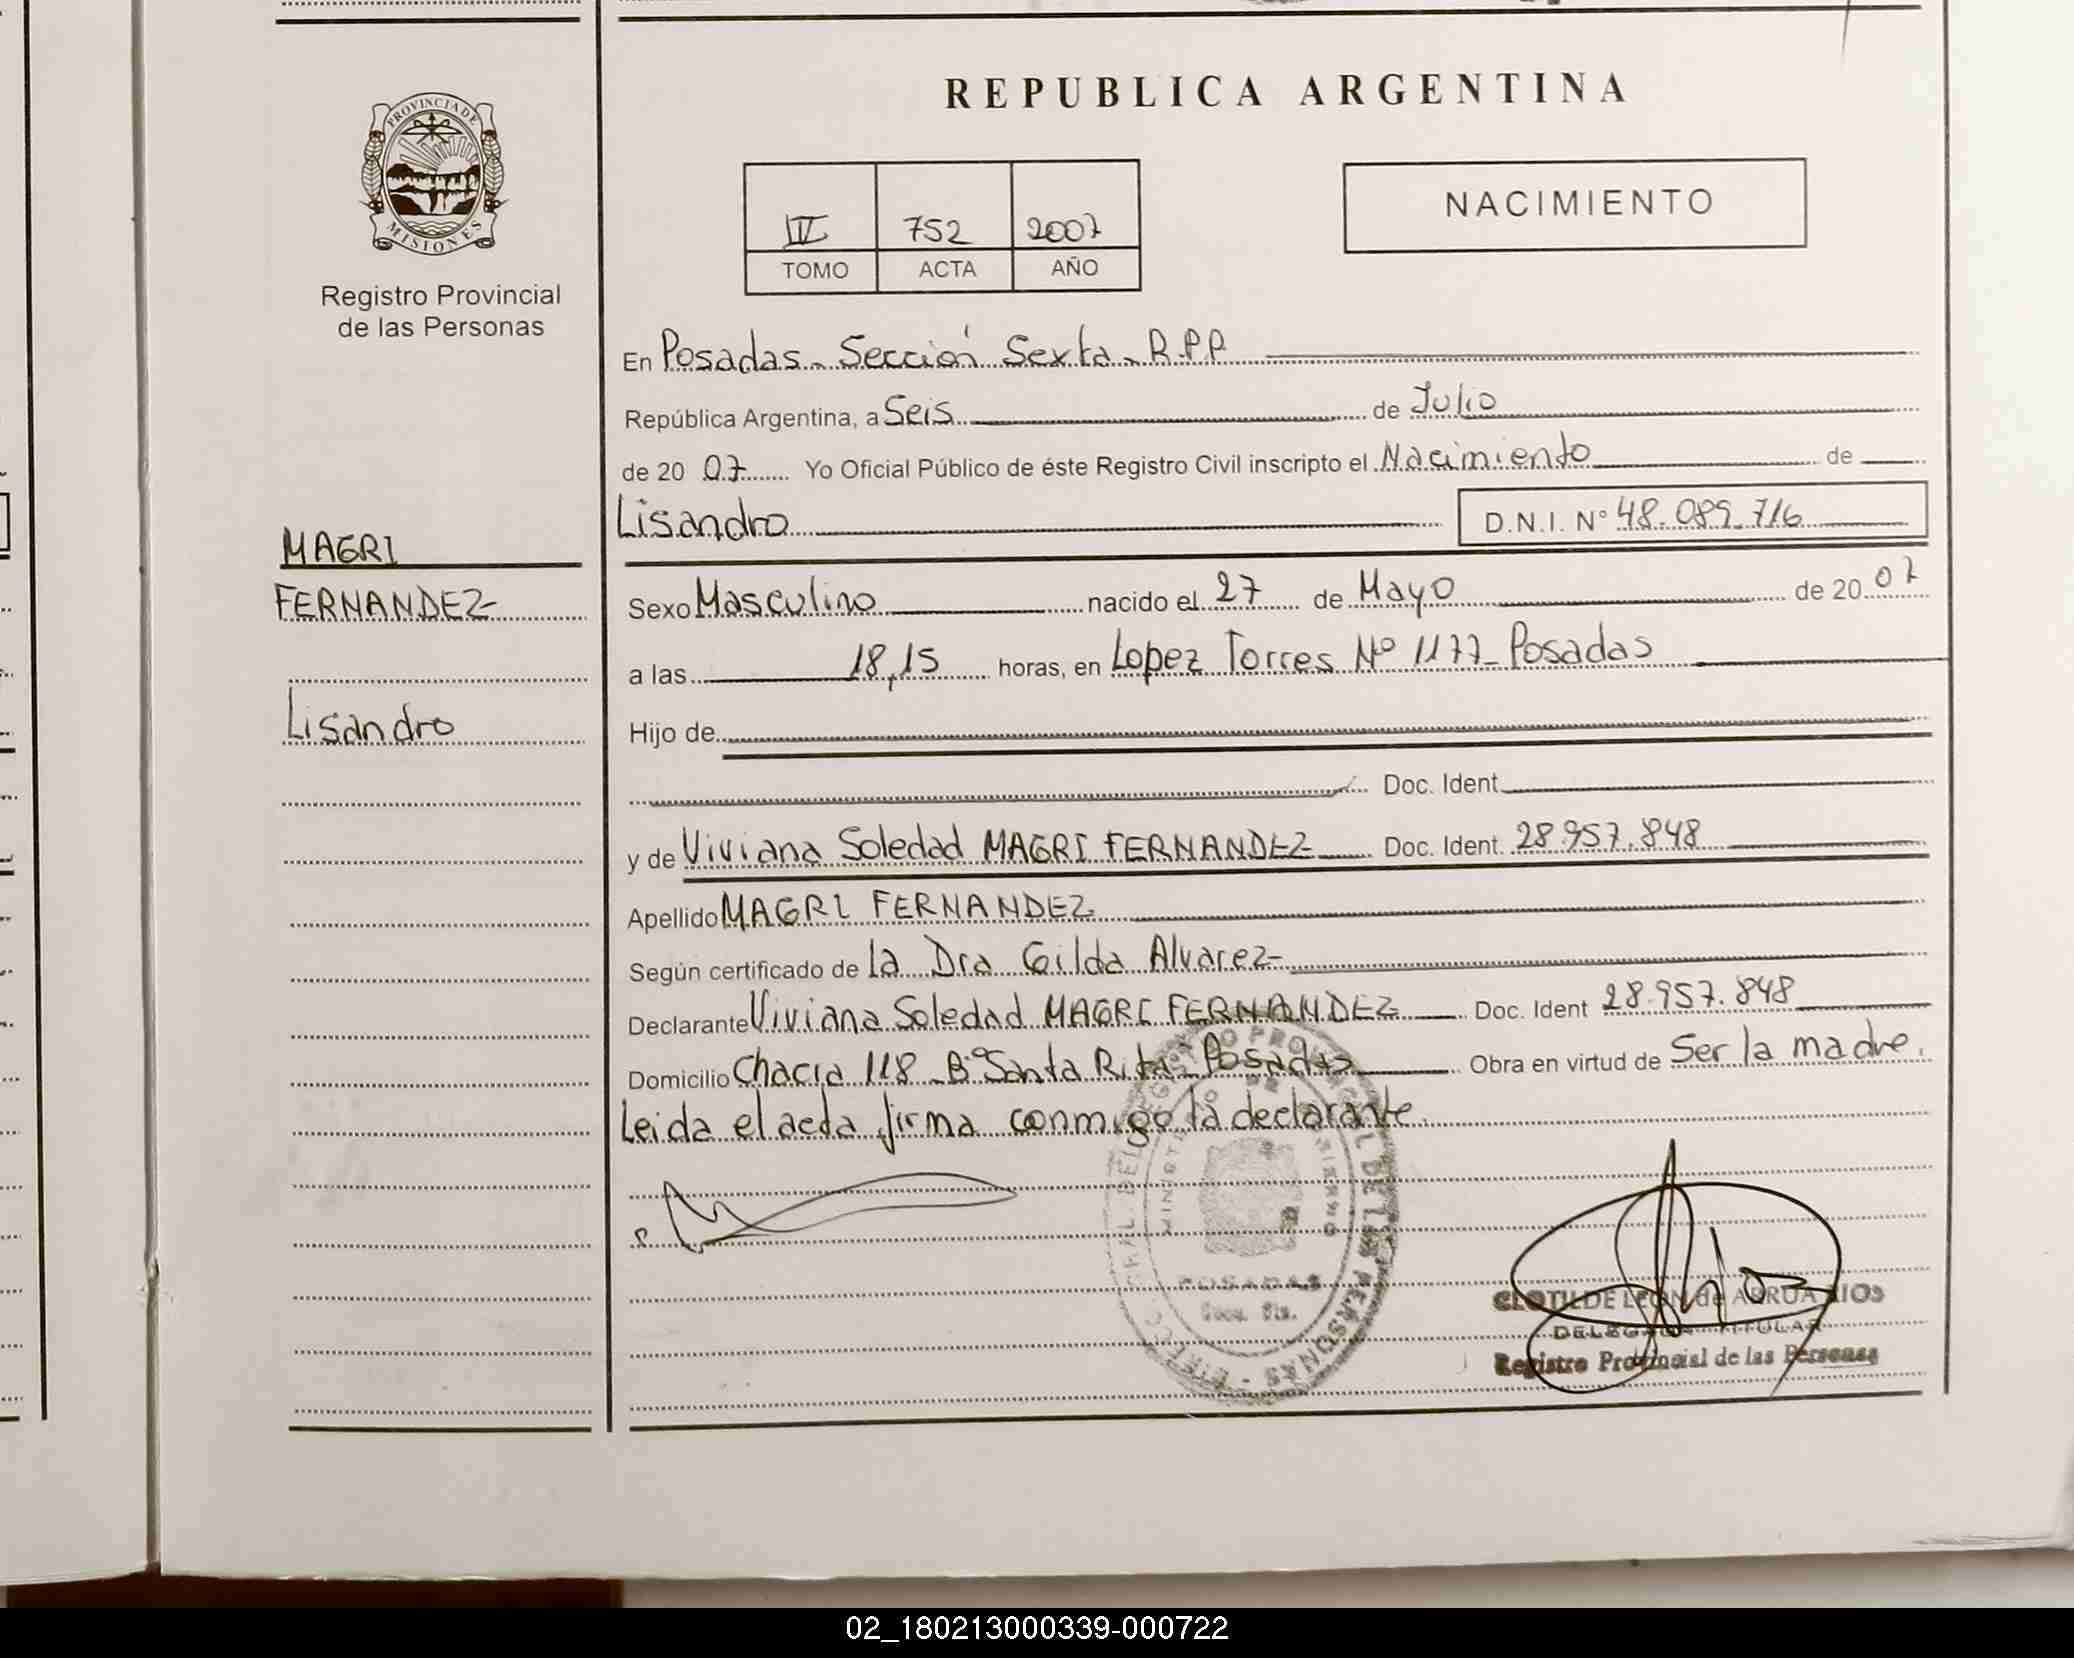 REPUBLICA ARGENTINA
PROVINCIA DE
MISIONES
Registro Provincial
de las Personas
IV 752 2007
TOMO ACTA AÑO
NACIMIENTO
En Posadas - Sección Sexta - R.P.P
República Argentina, a Seis de Julio
de 20 07 Yo Oficial Público de éste Registro Civil inscripto el Nacimiento de
Lisandro D.N.I. Nº 48.089.716
MAGRI
FERNANDEZ
Lisandro
Sexo Masculino nacido el 27 de Mayo de 20 07
a las 18,15 horas, en Lopez Torres Nº 1177 - Posadas
Hijo de
Doc. Ident.
y de Viviana Soledad MAGRI FERNANDEZ Doc. Ident. 28.957.848
Apellido MAGRI FERNANDEZ
Según certificado de la Dra Gilda Alvarez
Declarante Viviana Soledad MAGRI FERNANDEZ Doc. Ident 28.957.848
Domicilio Chacra 118 - Bº Santa Rita - Posadas Obra en virtud de Ser la madre.
Leida el acta firma conmigo la declarante.
POSADAS
CLOTILDE LEON de ARRUA RIOS
DELEGADA TITULAR
Registro Provincial de las Personas
02_180213000339-000722